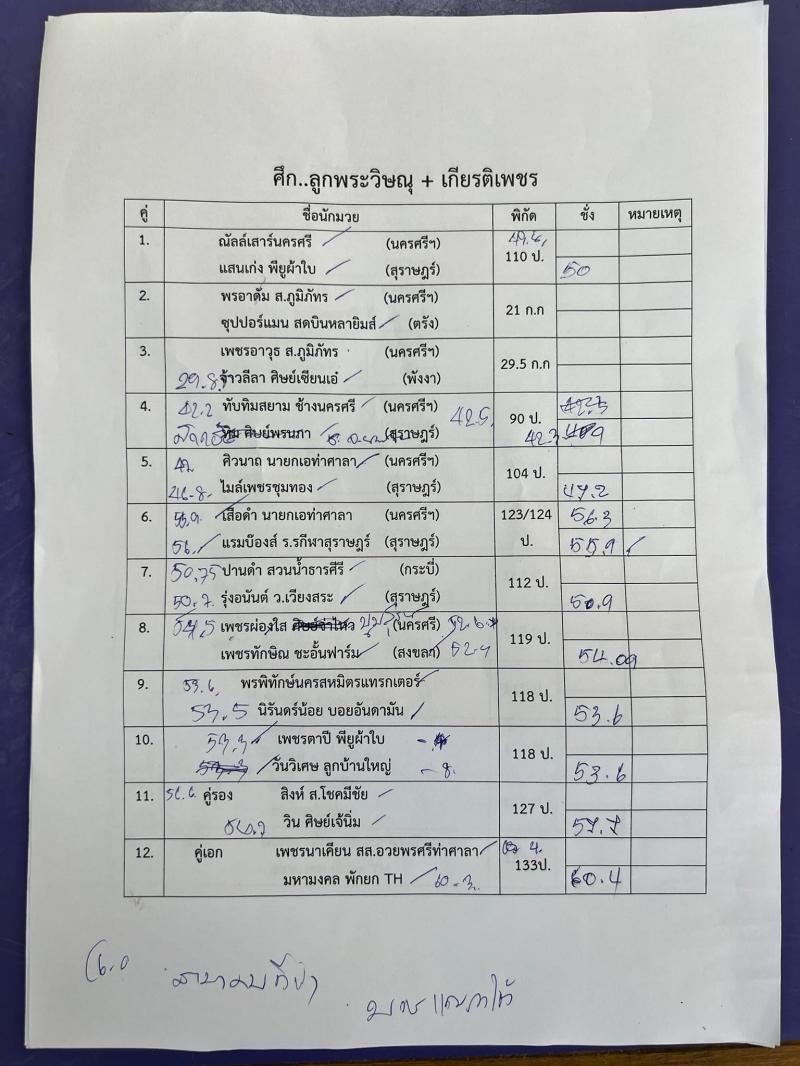 ศึก..ลูกพระวิษณุ + เกียรติเพชร
คู่ ชื่อนักมวย พิกัด ชั่ง หมายเหตุ
1. ณัลล์เสาร์นครศรี (นครศรีฯ) 110 ป.
แสนเก่ง พียูผ้าใบ (สุราษฎร์) 50
2. พรอาดัม ส.ภูมิภัทร (นครศรีฯ) 21 ก.ก
ซุปปอร์แมน สดบินหลายิมส์ (ตรัง)
3. เพชรอาวุธ ส.ภูมิภัทร (นครศรีฯ) 29.5 ก.ก
29.8 จ้าวลีลา ศิษย์เซียนเอ๋ (พังงา)
4. 42.2 ทับทิมสยาม ช้างนครศรี (นครศรีฯ) 42.5 90 ป.
ศิษย์พรนภา (สุราษฎร์) 42.3
5. 47 ศิวนาถ นายกเอท่าศาลา (นครศรีฯ) 104 ป.
46.8 ไมล์เพชรชุมทอง (สุราษฎร์) 47.2
6. 55.9 เสือดำ นายกเอท่าศาลา (นครศรีฯ) 123/124 ป. 56.3
56 แรมบ๊องส์ ร.รกีฬาสุราษฎร์ (สุราษฎร์) 55.9
7. 50.75 ปานดำ สวนน้ำธารศีรี (กระบี่) 112 ป.
50.7 รุ่งอนันต์ ว.เวียงสระ (สุราษฎร์) 50.9
8. 54.5 เพชรผ่องใส ศิษย์จ่าไหว (นครศรี) 119 ป.
เพชรทักษิณ ชะอั้นฟาร์ม (สงขลา) 54.09
9. 53.6 พรพิทักษ์นครสหมิตรแทรกเตอร์ 118 ป.
53.5 นิรันดร์น้อย บอยอันดามัน 53.6
10. 53.3 เพชรตาปี พียูผ้าใบ 118 ป.
วันวิเศษ ลูกบ้านใหญ่ - 8. 53.6
11. คู่รอง สิงห์ ส.โชคมีชัย 127 ป.
วิน ศิษย์เจ้นิ่ม 57.7
12. คู่เอก เพชรนาเคียน สส.อวยพรศรีท่าศาลา 133ป.
มหามงคล พักยก TH 60.3 60.4